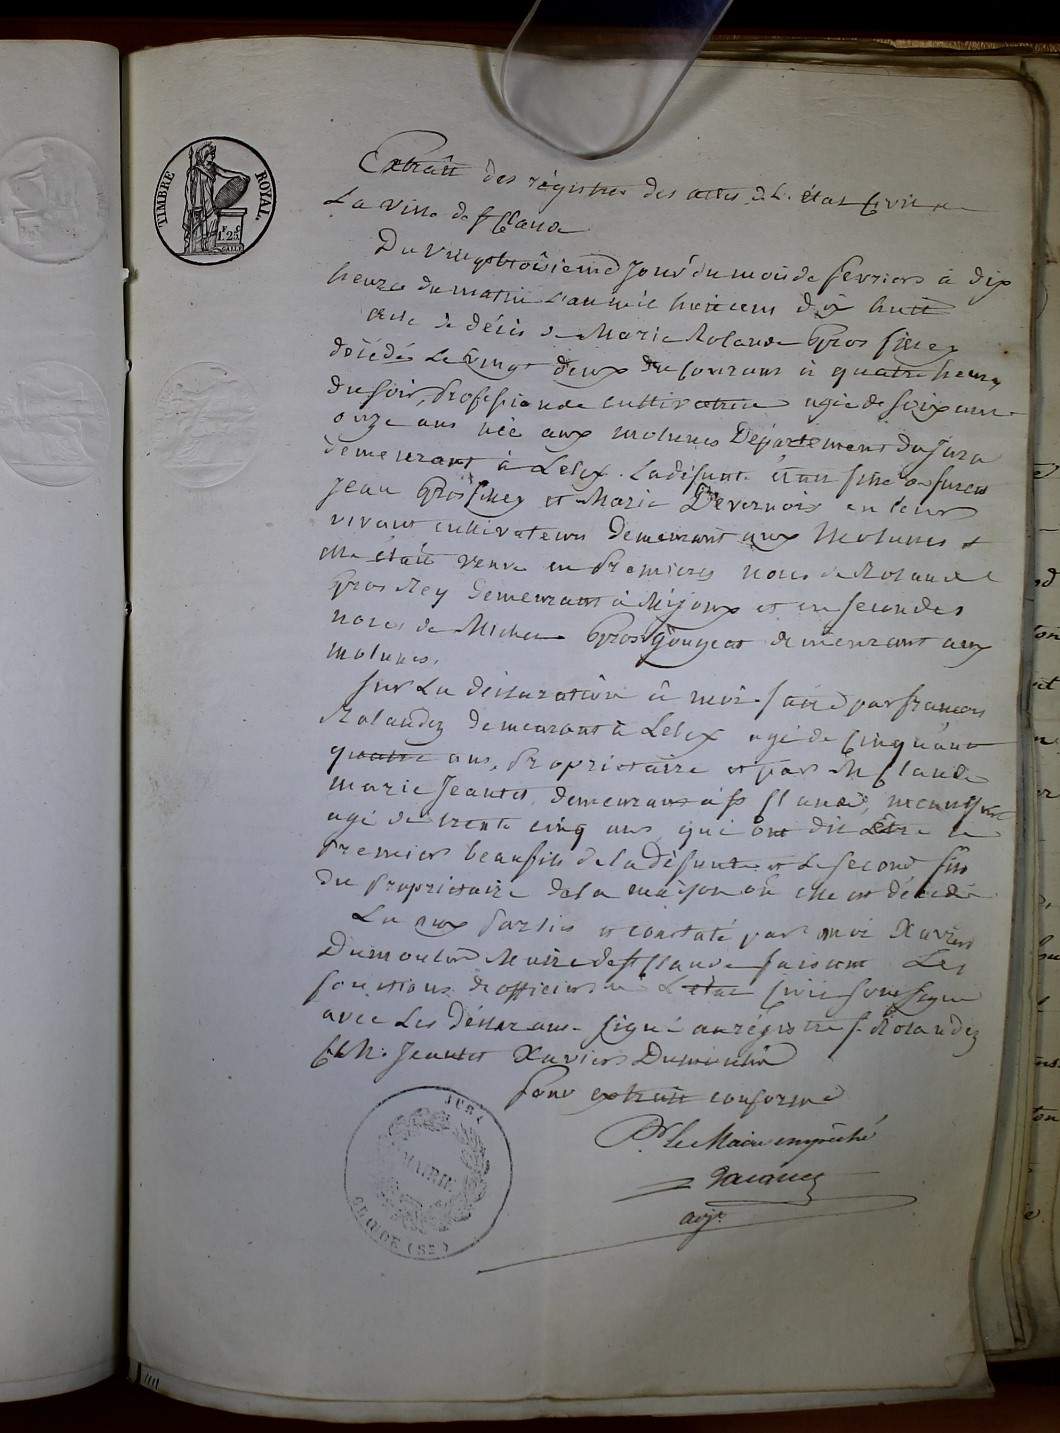 TIMBRE ROYAL.
1F 25C
Extrait des régistres des actes de L. état Civil de
La ville de St Claude
Du vingt troisieme Jour du mois de fevriers à dix
heures du matin L'an mil huit cens dix huit
Acte de décés de Marie Rolande Gros fillex
décédé Le vingt deux du Courant à quatre heures
du soir, Profession de cultivatrice agée de soixante
onze ans née aux molunes Département du Jura
demeurant à Lelex. La défunte était fille de furent
Jean Grosfillex et Marie Devernois en leur
vivant cultivateurs demeurant aux Molunes et
elle était veuve en Premieres noces de Roland
Gros Rey demeurant à Mijoux et en secondes
noces de Michel Gros Gougeat demeurant aux
molunes.
Sur La déclaration à moi faite par francois
Rolandez demeurant à Lelex agé de Cinquante
quatre ans, Proprietaire et par M Claude
marie Jeantet, demeurant à St Claude, menuisier
agé de trente cinq ans qui ont dit Être le
Premiers beaufils de la défunte et Le second fils
du Proprietaire de la maison où elle est décédée
Lu aux Parties et constaté par moi Xaviers
Dumoulin Maire de St Claude faisant Les
fonctions d'officiers de L'état Civil soussigné
avec Les déclarans. Signé au régistre f. Rolandez
Cl M. Jeantet Xaviers Dumoulin
Pour extrait conforme
Pr. Le Maire empêché
adjt
JURA
MAIRIE
CLAUDE (ST.)